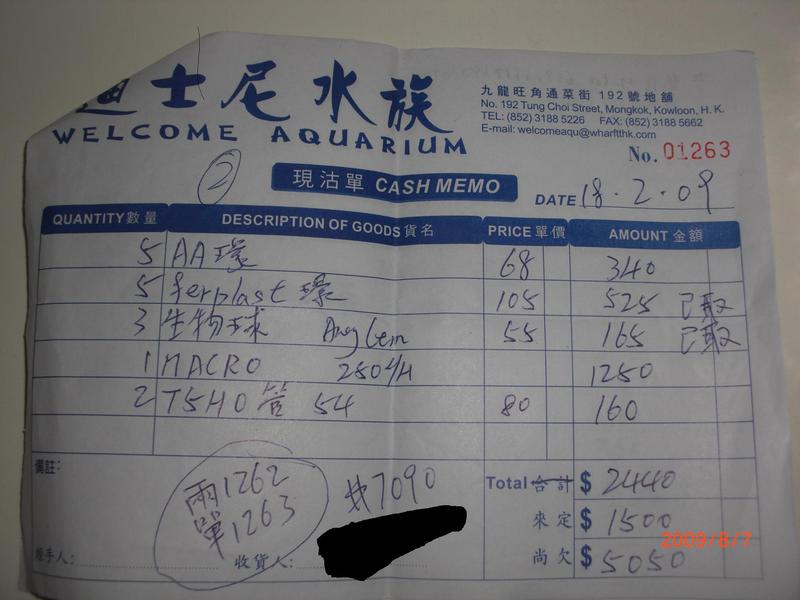 迪士尼水族
WELCOME AQUARIUM
九龍旺角通菜街192號地舖
No. 192 Tung Choi Street, Mongkok, Kowloon, H. K.
TEL: (852) 3188 5226 FAX: (852) 3188 5662
E-mail: welcomeaqu@wharftthk.com
No. 01263
② 現沽單 CASH MEMO
DATE 18.2.09
QUANTITY數量 DESCRIPTION OF GOODS貨名 PRICE單價 AMOUNT 金額
5 AA環 68 340
5 ferplast 環 105 525 已取
3 生物球 55 165 已取
1 MACRO 1250
2 T5HO 管 54 80 160
備註:
Total合計 $ 2440
兩1262 #7090
單1263
來定 $ 1500
2009/8/7
經手人: 收貨人: 尚欠 $ 5050